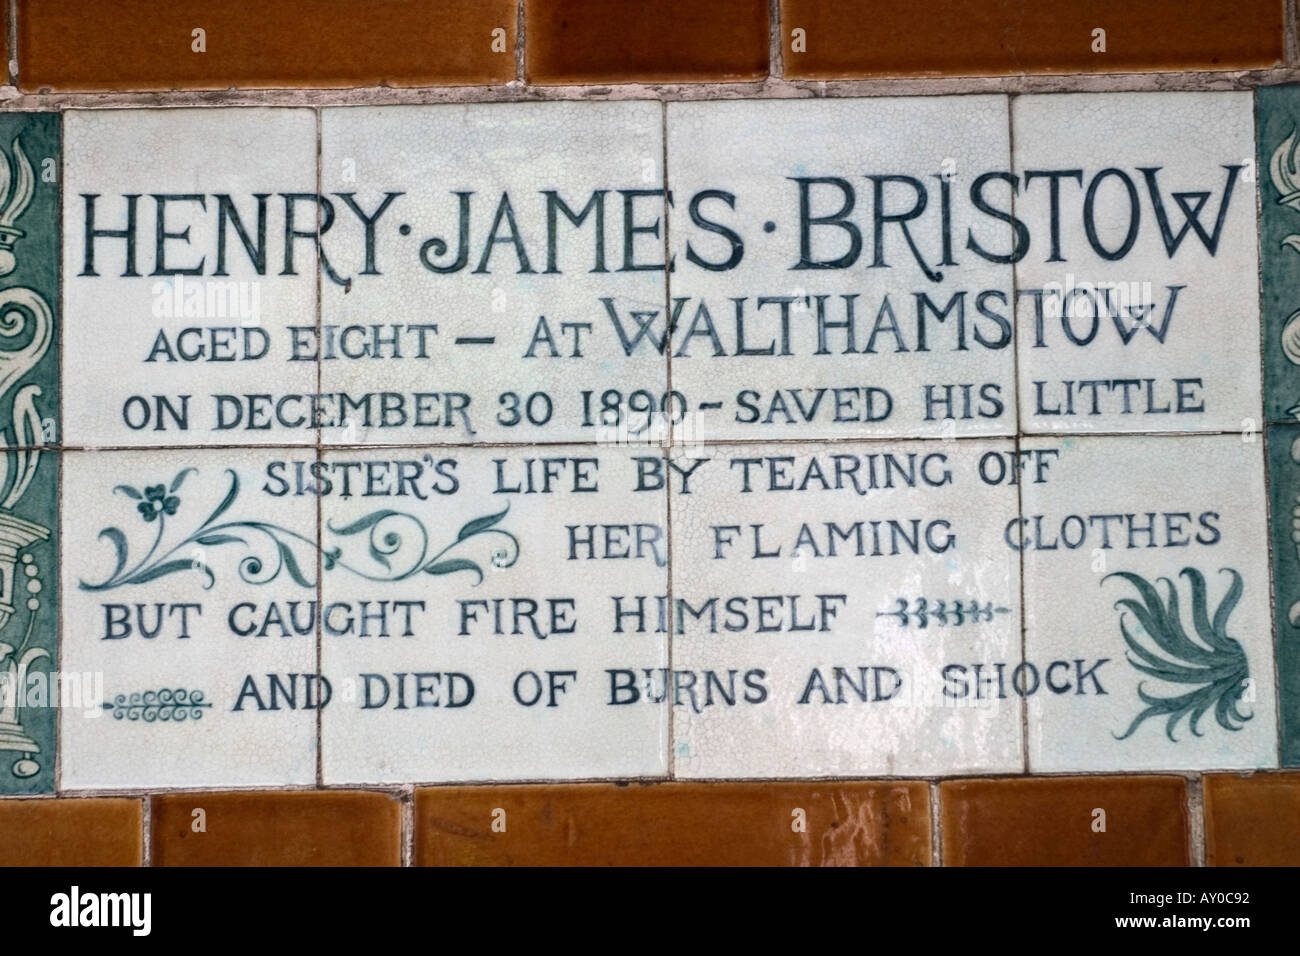 HENRY·JAMES·BRISTOW
AGED EIGHT – AT WALTHAMSTOW
ON DECEMBER 30 1890 – SAVED HIS LITTLE
SISTER'S LIFE BY TEARING OFF
HER FLAMING CLOTHES
BUT CAUGHT FIRE HIMSELF
AND DIED OF BURNS AND SHOCK
a a a a
a alamy a
a a a a
alamy
Image ID: AY0C92
www.alamy.com